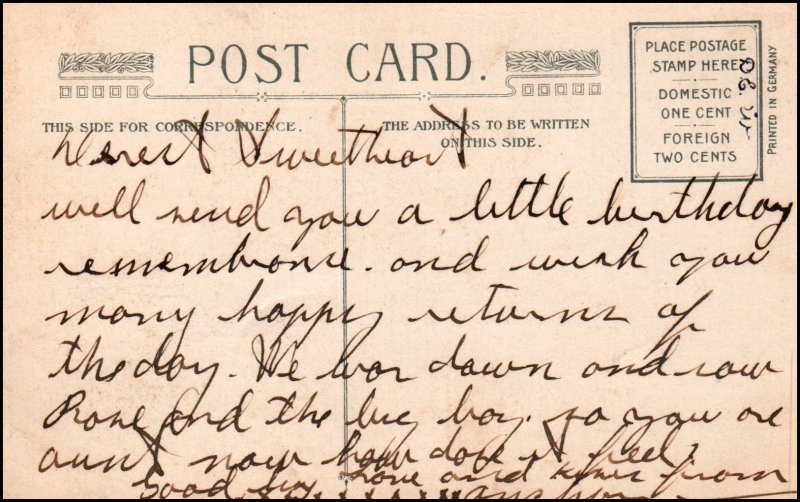 POST CARD.
THIS SIDE FOR CORRESPONDENCE.
THE ADDRESS TO BE WRITTEN
ON THIS SIDE.
PLACE POSTAGE
STAMP HERE
DOMESTIC
ONE CENT
FOREIGN
TWO CENTS
PRINTED IN GERMANY
Sweetheart
will send you a little birthday
and wish you
many happy returns of
the day. We war down and saw
Rose and the big boy. so you are
aunt now how dose it feel
Good love and kisses from